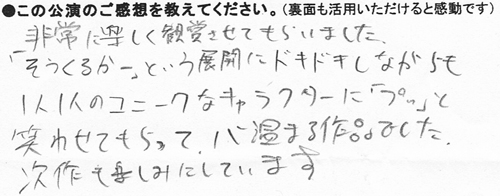 ●この公演のご感想を教えてください。(裏面も活用いただけると感動です)
非常に楽しく観賞させてもらいました。
「そうくるかー」という展開にドキドキしながらも
1人1人のユニークなキャラクターに「プッ」と
笑わせてもらって、心温まる作品でした。
次作も楽しみにしています